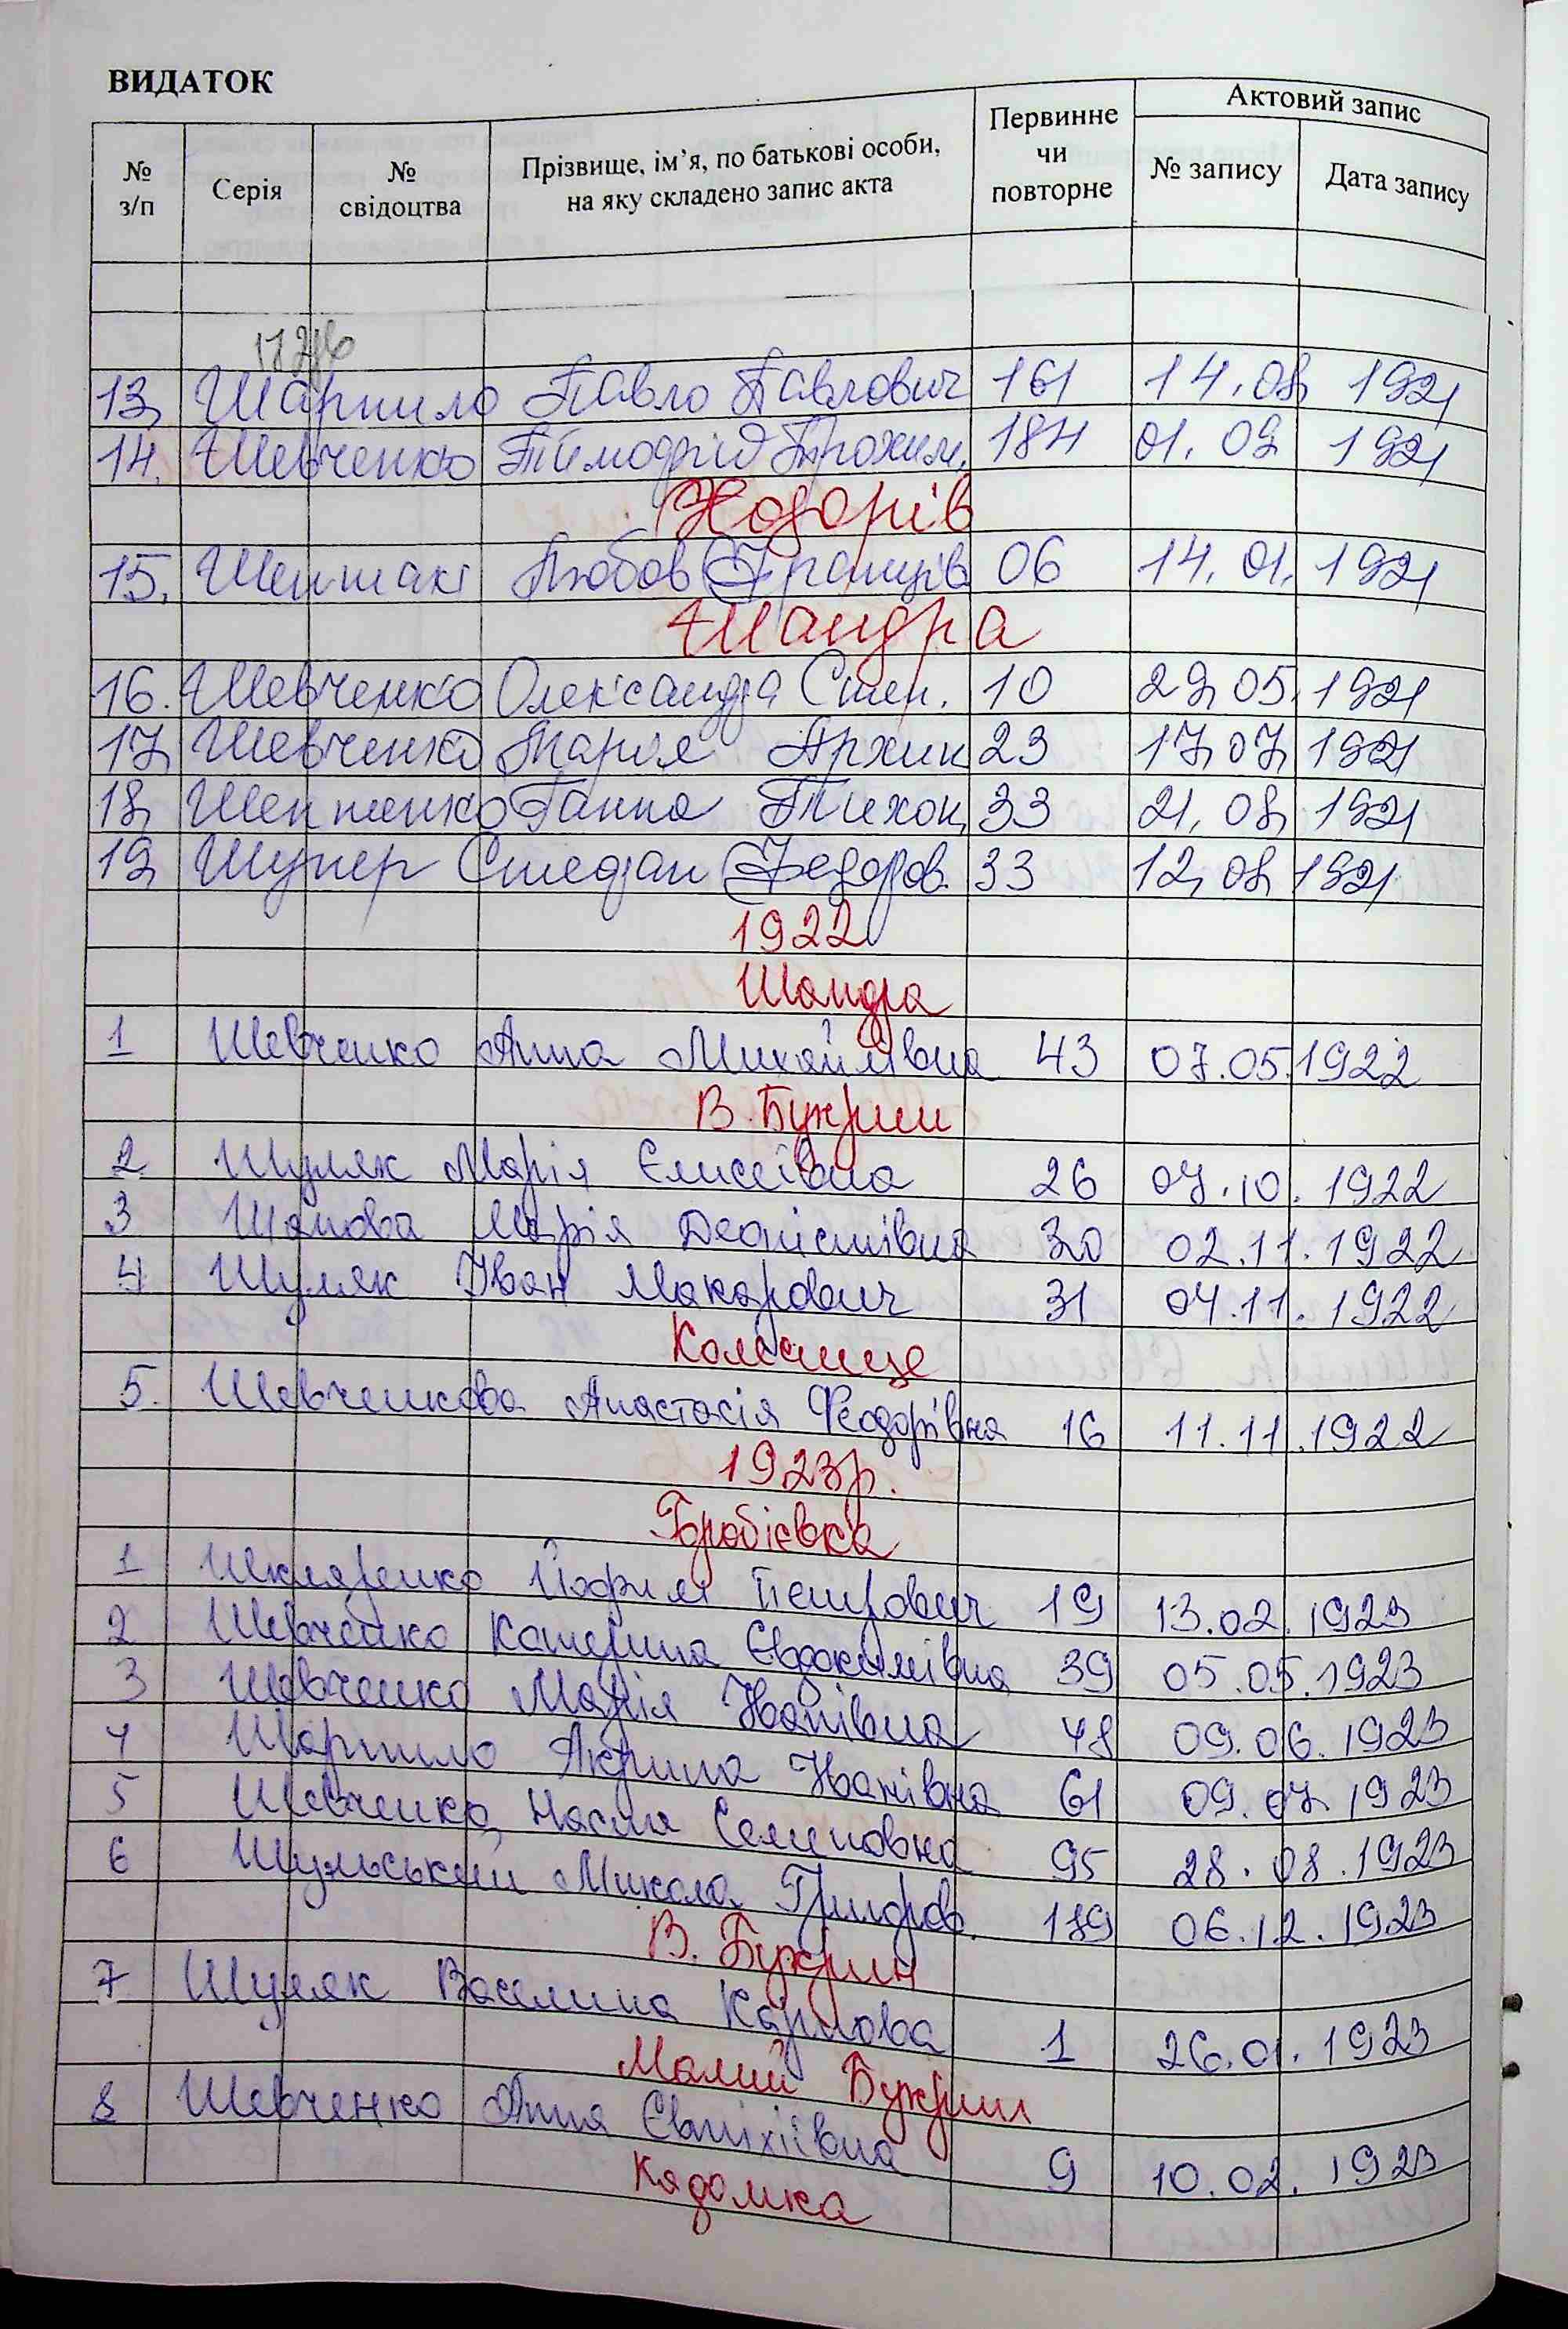 ВИДАТОК
№ з/п Серія № свідоцтва Прізвище, ім’я, по батькові особи, на яку складено запис акта Первинне чи повторне Актовий запис № запису Дата запису
13. Шарпило Павло Павлович 161 14.08 1921
14. Шевченко Прохим. 184 01.09 1921
Ходорів
15. Любов Франців 06 14.01. 1921
Шандра
16. Шевченко Олександра Степ. 10 29.05. 1921
17. Шевченко Марія Архип 23 17.07. 1921
18. Ганна Тихон. 33 21.08. 1921
19. Шупер Степан Федоров. 33 12.08. 1921
1922
Шандра
1 Шевченко Анна Михайлівна 43 07.05.1922
В. Букрин
2 Шуляк Марія Єлисеївна 26 07.10.1922
3 Марія 30 02.11.1922
4 Шуляк Іван Макарович 31 04.11.1922
5. Шевченкова Анастасія Феодорівна 16 11.11.1922
1923р.
1 Шкляренко Петрович 19 13.02.1923
2 Шевченко Катерина Євдокимівна 39 05.05.1923
3 Шевченко Марія Іванівна 48 09.06.1923
4 Шарпило Акрина Іванівна 61 09.07.1923
5 Шевченко Настя Семеновна 95 28.08.1923
6 Шульський Микола Григоров. 189 06.12.1923
В. Букрин
7 Шуляк Василина Карпова 1 26.01.1923
Малий Букрин
8 Шевченко Анна Євтихіївна 9 10.02.1923
Кадомка